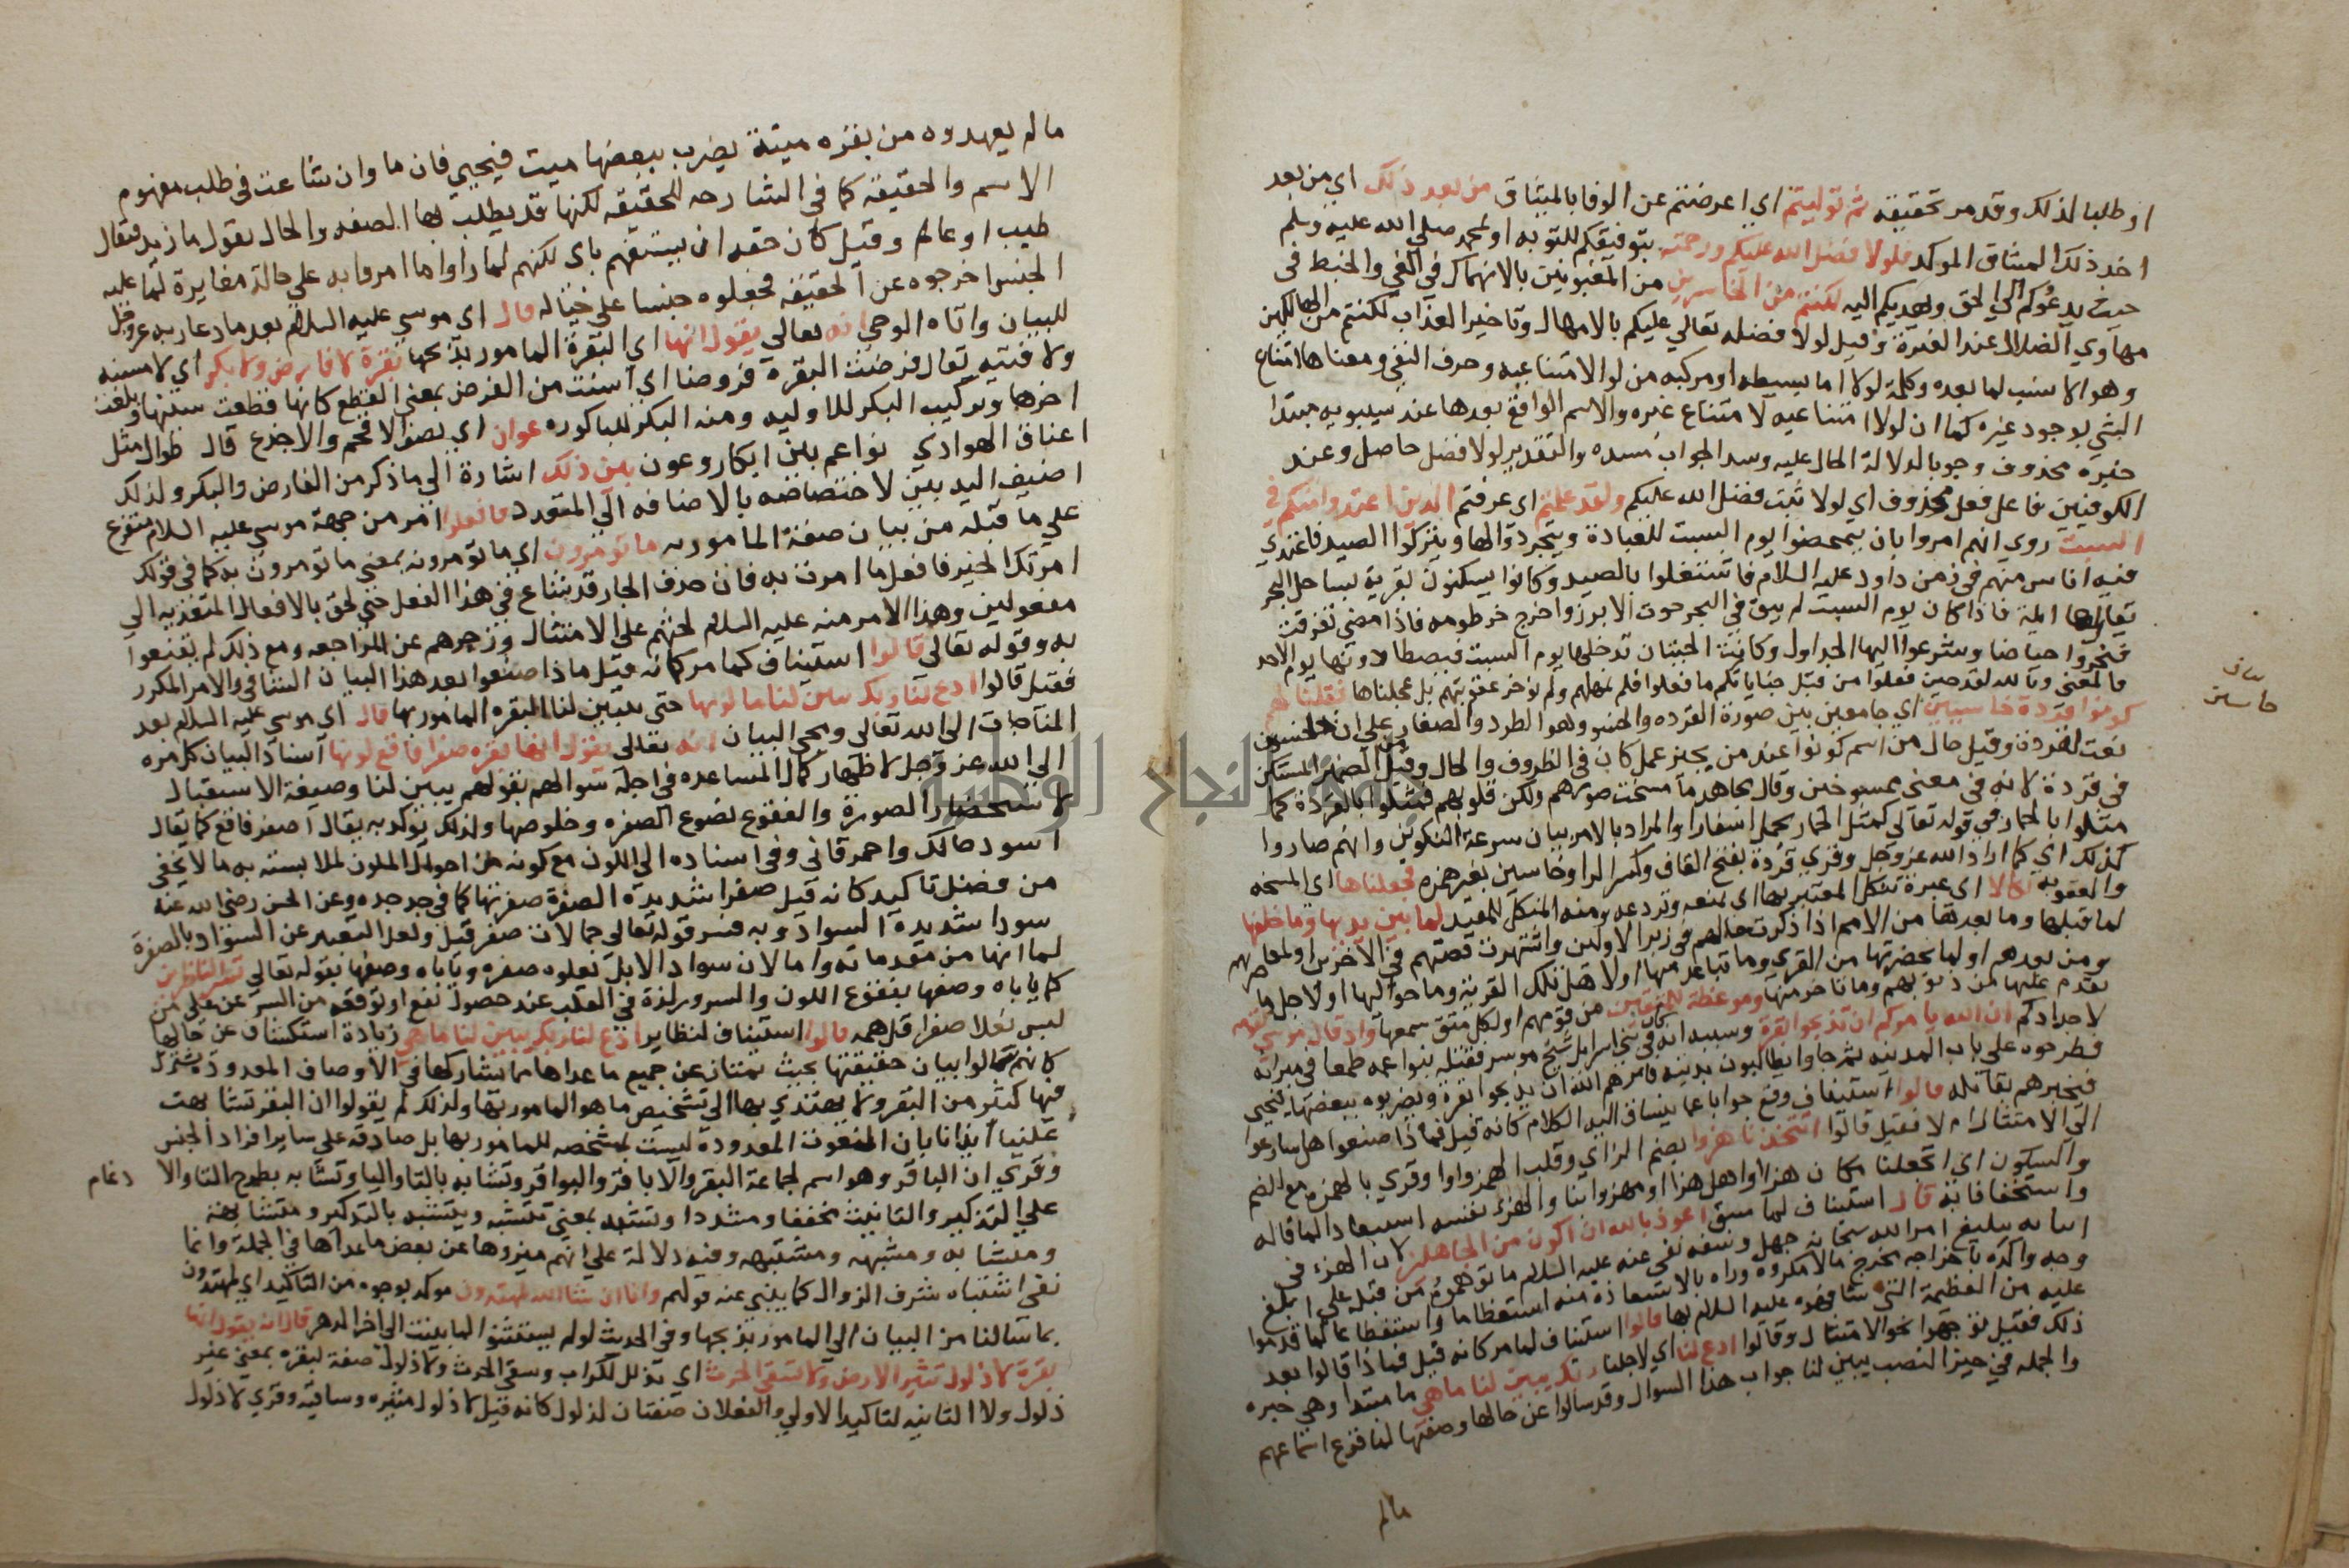 او طلبا لذلك وقد مر تحقيقه ثم توليتم اي اعرضتم عن الوفا بالميثاق من بعد ذلك اي من بعد
اخذ ذلك الميثاق الموكد فلولا فضل الله عليكم ورحمته بتوفيقكم للتوبه او بمحمد صلي الله عليه وسلم
حيث يدعوكم الي الحق ويهديكم اليه لكنتم من الخاسرين من المغبونين بالانهماك في الغي والخبط في
مهاوي الضلال عند الفترة وقيل لولا فضله تعالي عليكم بالامهال وتاخير العذاب لكنتم من الهالكين
وهو الانسب لما بعده وكلمة لولا اما بسيطه او مركبه من لو الامتناعيه وحرف النفي ومعناها امتناع
الشي بوجود غيره كما ان لو لا امتناعيه لامتناع غيره والاسم الواقع بعدها عند سيبويه مبتدا
خبره محذوف وجوبا لدلالة الحال عليه وسد الجواب مسده والتقدير لولا فضل حاصل وعند
الكوفيين فاعل فعل محذوف اي لولا ثبت فضل الله عليكم ولقد علمتم اي عرفتم الذين اعتدوا منكم في
السبت روي انهم امروا بان يتمحضوا يوم السبت للعبادة ويتجردوا لها ويتركوا الصيد فاعتدي
فيه اناس منهم في زمن داود عليه السلام فاشتغلوا بالصيد وكانوا يسكنون بقرية بساحل البحر
يقال لها ايلة فاذا كان يوم السبت لم يبق في البحر حوت الا برز واخرج خرطومه فاذا مضي تفرقت
فحفروا حياضا وشرعوا اليها الجداول وكانت الحيتان تدخلها يوم السبت فيصطادونها يوم الاحد
فالمعني وبالله لقد حين فعلوا من قبل جناياتكم ما فعلوا فلم نمهلهم ولم نوخر عقوبتهم بل عجلناها فقلنا لهم
كونوا قردة خاسيين اي جامعين بين صورة القرده والخسو وهو الطرد والصغار علي ان خاسيين
نعت لقردة وقيل حال من اسم كونوا عند من يجيز عمل كان في الظروف والحال وقيل من الضمير المستكن
في قردة لانه في معني ممسوخين وقال مجاهد ما مسخت صورهم ولكن قلوبهم فمثلوا بالقردة كما
مثلوا بالحمار في قوله تعالي كمثل الحمار يحمل اسفارا والمراد بالامر بيان سرعة التكوين وانهم صاروا
كذلك اي كما اراد الله عز وجل وقري قردة بفتح القاف وكسر الرا وخاسين بغير همزه فجعلناها اي المسخه
والعقوبه نكالا اي عبرة تنكل المعتبر بها اي تمنعه وتردعه ومنه النكل للقيد لما بين يديها وما خلفها
لما قبلها وما بعدها من الامم اذا ذكرت حالهم في زبر الاولين واشتهرت قصتهم في الاخرين او لمعاصريهم
ومن بعدهم او لما بحضرتها من القري وما تباعد منها او لاهل تلك القرية وما حواليها او لاجل ما
تقدم عليها من ذنوبهم وما تاخر منها وموعظة للمتقين من قومهم او لكل متق سمعها واذ قال موسي لقومه
لاجدادكم ان الله يامركم ان تذبحوا بقرة وسببه انه كان في بني اسرايل شيخ موسر فقتله بنوا عمه طمعا في ميراثه
فطرحوه علي باب المدينه ثم جاوا يطالبون بدميه فامرهم الله ان يذبحوا بقرة ويضربوه ببعضها ليحيي
فيخبرهم بقاتله قالوا استيناف وقع جوابا عما ينساق اليه الكلام كانه قيل فماذا صنعوا هل سارعوا
الي الامتثال ام لا فقيل قالوا اتتخذنا هزوا بضم الزاي وقلب الهمز واوا وقري بالهمزه مع الضم
والسكون اي اتجعلنا مكان هزا او اهل هزا او مهزوا بنا والهزء نفسه استبعادا لما قاله
واستخفافا به قال استيناف لما سبق اعوذ بالله ان اكون من الجاهلين لان الهزء في
اثنا تبليغ امر الله سبحانه جهل وسفه نفي عنه عليه السلام ما توهموه من قبله علي ابلغ
وجه واكده باخراجه مخرج ما لا مكروه وراه بالاستعاذة منه استفظاعا واستعظاما لما قدموا
عليه من العظيمة التي شافهوه عليه السلام بها قالوا استيناف لما مر كانه قيل فماذا قالوا بعد
ذلك فقيل توجهوا نحو الامتثال وقالوا ادع لنا اي لاجلنا ربك يبين لنا ما هي ما مبتدا وهي خبره
والجمله في حيز النصب يبين لنا جواب هذا السوال وقد سالوا عن حالها وصفتها لما قرع اسماعهم
مالم
بيان
خاسين
مالم يعهدوه من بقره ميتة يضرب ببعضها ميت فيحيي فان ما وان شاعت في طلب مفهوم
الاسم والحقيقة كما في الشارحه للحقيقه لكنها قد يطلب بها الصفه والحال تقول ما زيد فيقال
طبيب او عالم وقيل كان حقه ان يستفهم باي لكنهم لما راوا ما امروا به علي حالة مغايرة لما عليه
الجنس اخرجوه عن الحقيقة فجعلوه جنسا علي حياله قال اي موسي عليه السلام بعد ما دعا ربه عز وجل
للبيان واتاه الوحي انه تعالي يقول انها اي البقرة المامور بذبحها بقرة لا فارض ولا بكر اي لا مسنه
ولا فتيه يقال فرضت البقرة فروضا اي اسنت من الفرض بمعني القطع كانها قطعت سنها وبلغت
اخرها وتركيب البكر للاوليه ومنه البكر للباكوره عوان اي نصف لا قحم ولا جذع قال طوال مثل
اعناق الهوادي نواعم بين ابكار وعون بين ذلك اشارة الي ما ذكر من الفارض والبكر ولذلك
اضيف اليه بين لاختصاصه بالاضافه الي المتعدد فافعلوا امر من جهة موسي عليه السلام متفرع
علي ما قبله من بيان صفة المامور به ما تومرون اي ما تومرونه بمعني ما تومرون به كما في قولك
امرتك الخير فافعل ما امرت به فان حذف الجار قد شاع في هذا الفعل حتي لحق بالافعال المتعديه الي
مفعولين وهذا الامر منه عليه السلام لحثهم علي الامتثال وزجرهم عن المراجعه ومع ذلك لم يقنعوا
به وقوله تعالي قالوا استيناف كما مر كانه قيل ماذا صنعوا بعد هذا البيان الشافي والامر المكرر
فقيل قالوا ادع لنا ربك يبين لنا ما لونها حتي يتبين لنا البقره المامور بها قال اي موسي عليه السلام بعد
المناجات الي الله تعالي ومجي البيان انه تعالي يقول انها بقره صفرا فاقع لونها اسناد البيان كل مره
الي الله عز وجل لاظهار كمال المساعده في اجابة سوالهم بقولهم يبين لنا وصيغة الاستقبال
لاستحضار الصورة والفقوع نصوع الصفره وخلوصها ولذلك يوكد به يقال اصفر فاقع كما يقال
اسود حالك واحمر قاني وفي اسناده الي اللون مع كونه من احوال الملون لملابسته به ما لا يخفي
من فضل تاكيد كانه قيل صفرا شديدة الصفرة صفرتها كما في جد جده وعن الحسن رضي الله عنه
سودا شديدة السواد وبه فسر قوله تعالي جمالات صفر قيل ولعل التعبير عن السواد بالصفرة
لما انها من مقدماته واما لان سواد الابل تعلوه صفره وياباه وصفها بقوله تعالي تسر الناظرين
كما ياباه وصفها بفقوع اللون والسرور لذة في القلب عند حصول نفع او توقعه من السر عن علي من
لبس نعلا صفرا قل همه قالوا استيناف لنظاير ادع لنا ربك يبين لنا ما هي زيادة استكشاف عن حالها
كانهم سالوا بيان حقيقتها بحيث تمتاز عن جميع ما عداها مما تشاركها في الاوصاف المعدودة يشترك
فيها كثير من البقر ولا يهتدي بها الي تشخيص ما هو المامور بها ولذلك لم يقولوا ان البقر تشابهت
علينا ايذانا بان النعوت المعدودة ليست بمشخصه للمامور بها بل صادقه علي ساير افراد الجنس
وقري ان الباقر وهو اسم لجماعة البقر والاباقر والبواقر وتشابه بالتا واليا وتشابه بطرح التا والا
دغام
علي التذكير والتانيث مخففا ومشددا وتشبه بمعني تتشبه ويتشبه بالتذكير ومتشابهة
ومتشابه ومشبهه ومتشبهه وفيه دلالة علي انهم ميزوها عن بعض ما عداها في الجملة وانما
نفي اشتباه شرف الزوال كما ينبي عنه قولهم وانا ان شا الله لمهتدون موكد بوجوه من التاكيد اي لمهتدون
بما سالنا من البيان الي المامور بذبحها وفي الحديث لو لم يستثنوا لما بينت الي اخر الدهر قال انه يقول انها
بقرة لا ذلول تثير الارض ولا تسقي الحرث اي تذلل للكراب وسقي الحرث ولا ذلول صفة لبقره بمعني غير
ذلول ولا الثانيه لتاكيد الاولي والفعلان صفتان لذلول كانه قيل لا ذلول مثيره وساقيه وقري لا ذلول